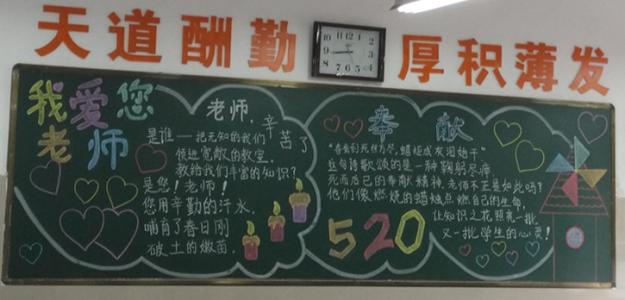 天道酬勤
厚积薄发
12
11
10
9
8
7
6
5
4
3
2
1
我爱您
老师
老师,辛苦了
是谁——把无知的我们
领进宽敞的教室,
教给我们丰富的知识?
是您!老师!
您用辛勤的汗水,
哺育了春日刚
破土的嫩苗.
奉献
"春蚕到死丝方尽,蜡炬成灰泪始干"
这句诗歌颂的是一种鞠躬尽瘁,
死而后已的奉献精神.老师不正是如此吗?
他们像燃烧的蜡烛点燃自己的生命,
让知识之花照亮一批
又一批学生的心灵!
520